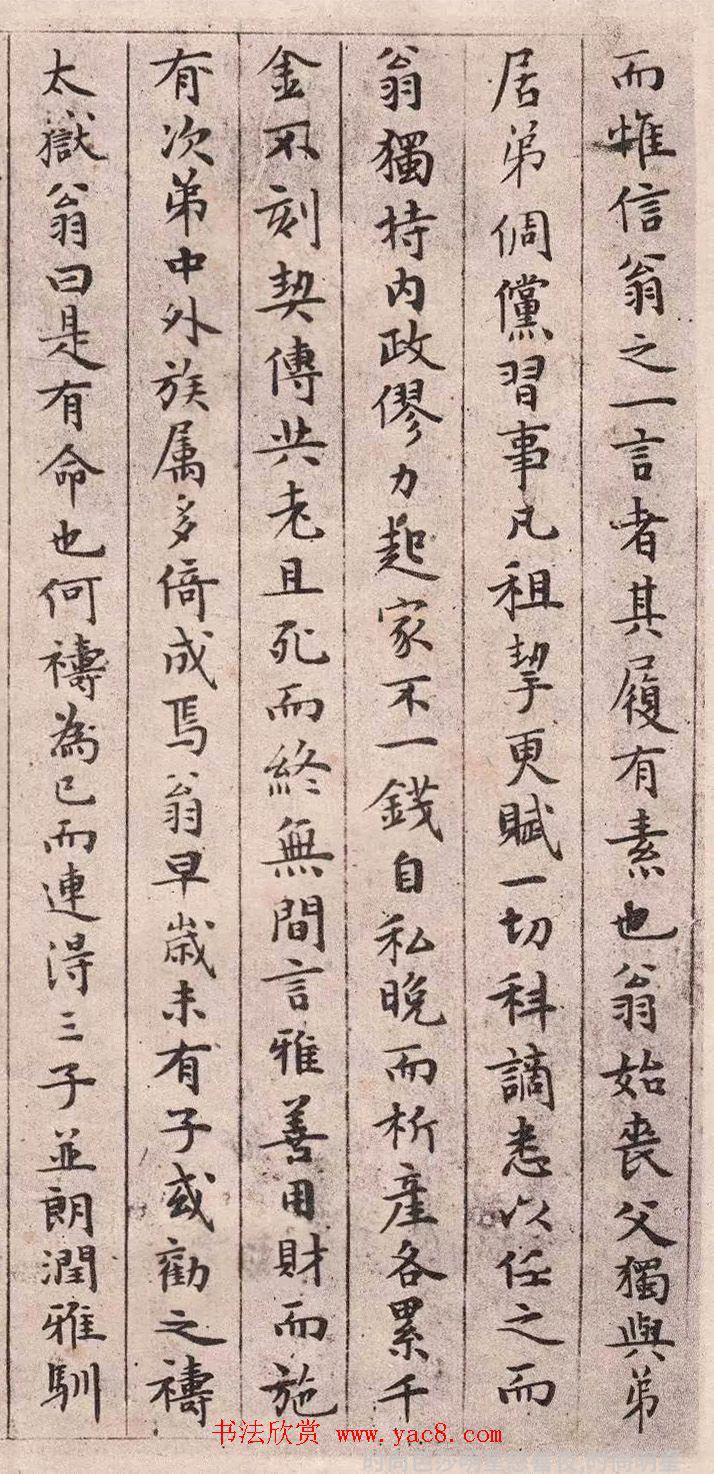 而惟信翁之一言者其履有素也翁始喪父獨與弟
居弟倜儻習事凡租挈更賦一切科謫悉以任之而
翁獨持内政僇力起家不一錢自私晚而析產各累千
金不刻契傳共老且死而終無間言雅善用財而施
有次弟中外族属多倚成焉翁早歲未有子或勸之禱
太嶽翁曰是有命也何禱為已而連得三子並朗潤雅馴
书法欣赏 www.yac8.com